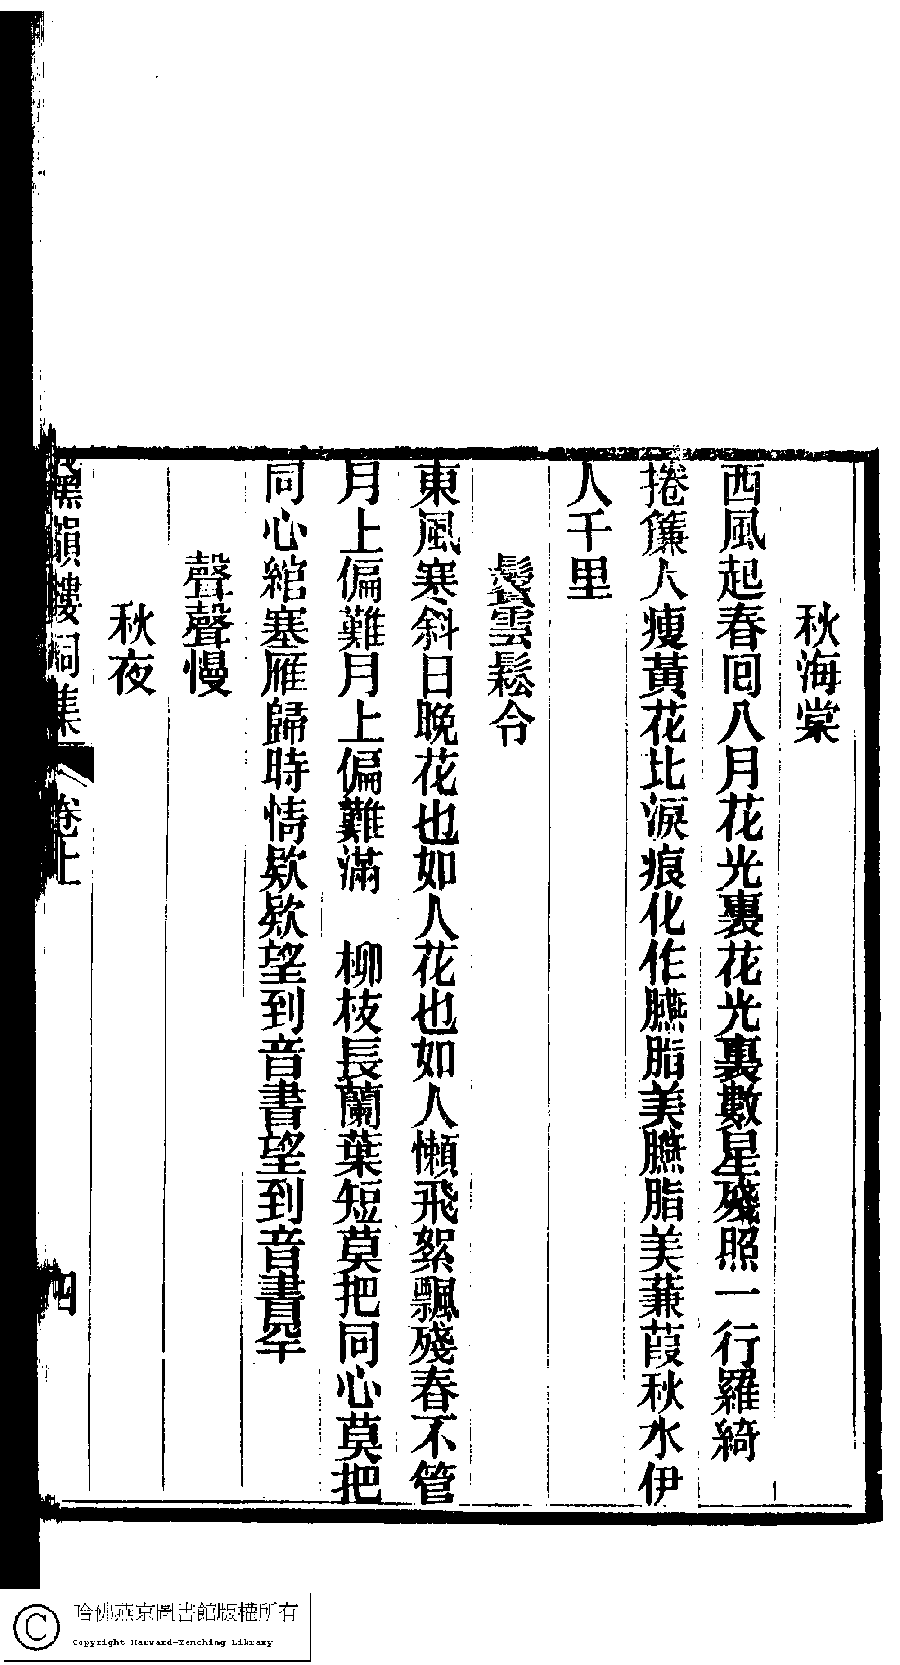 秋海棠
西風起春囘八月花光裏花光裏數星殘照一行羅綺
捲簾人瘦黃花比淚痕化作臙脂美臙脂美蒹葭秋水伊
人千里
鬢雲鬆令
東風寒斜日晚花也如人花也如人懶飛絮飄殘春不管
月上偏難月上偏難滿　柳枝長蘭葉短莫把同心莫把
同心綰塞雁歸時情欵欵望到音書望到音書罕
聲聲慢
秋夜
黛韻樓詞集 卷上 四
哈佛燕京圖書館版權所有
Copyright Harvard-Yenching Library